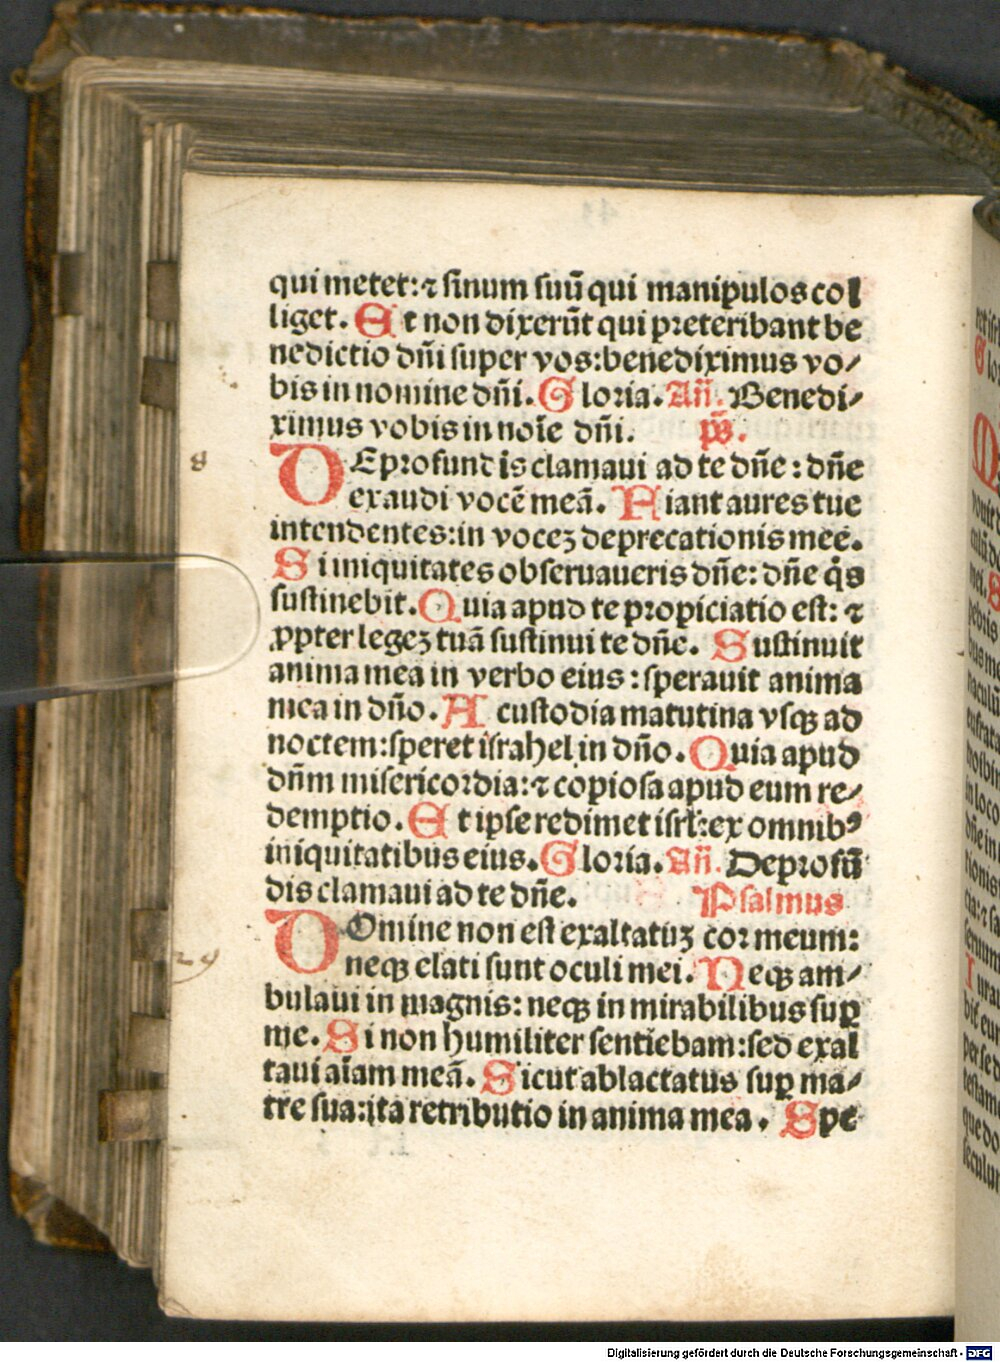 qui metet:⁊ sinum suũ qui manipulos col
liget. Et non dixerũt qui preteribant be
nedictio dñi super vos:benediximus vo⸗
bis in nomine dñi. Gloria. Añ. Benedi⸗
ximus vobis in noĩe dñi. p̃s.
8
DE profundis clamaui ad te dñe : dñe
exaudi vocẽ meã. Fiant aures tue
intendentes:in voceꝫ deprecationis mee.
Si iniquitates obseruaueris dñe: dñe q̃s
sustinebit. Quia apud te propiciatio est: ⁊
ꝓpter legeꝫ tuã sustinui te dñe. Sustinuit
anima mea in verbo eius : sperauit anima
mea in dño. A custodia matutina vsqꝫ ad
noctem:speret israhel in dño. Quia apud
dñm misericordia:⁊ copiosa apud eum re⸗
demptio. Et ipse redimet isrl:ex omnibꝰ
iniquitatibus eius. Gloria. Añ. De profũ
dis clamaui ad te dñe. Psalmus
DOmine non est exaltatuꝫ cor meum:
neqꝫ elati sunt oculi mei. Neqꝫ am⸗
bulaui in magnis: neqꝫ in mirabilibus suꝑ
me. Si non humiliter sentiebam:sed exal
taui aĩam meã. Sicut ablactatus suꝑ ma⸗
tre sua:ita retributio in anima mea. Spe
Digitalisierung gefördert durch die Deutsche Forschungsgemeinschaft - DFG